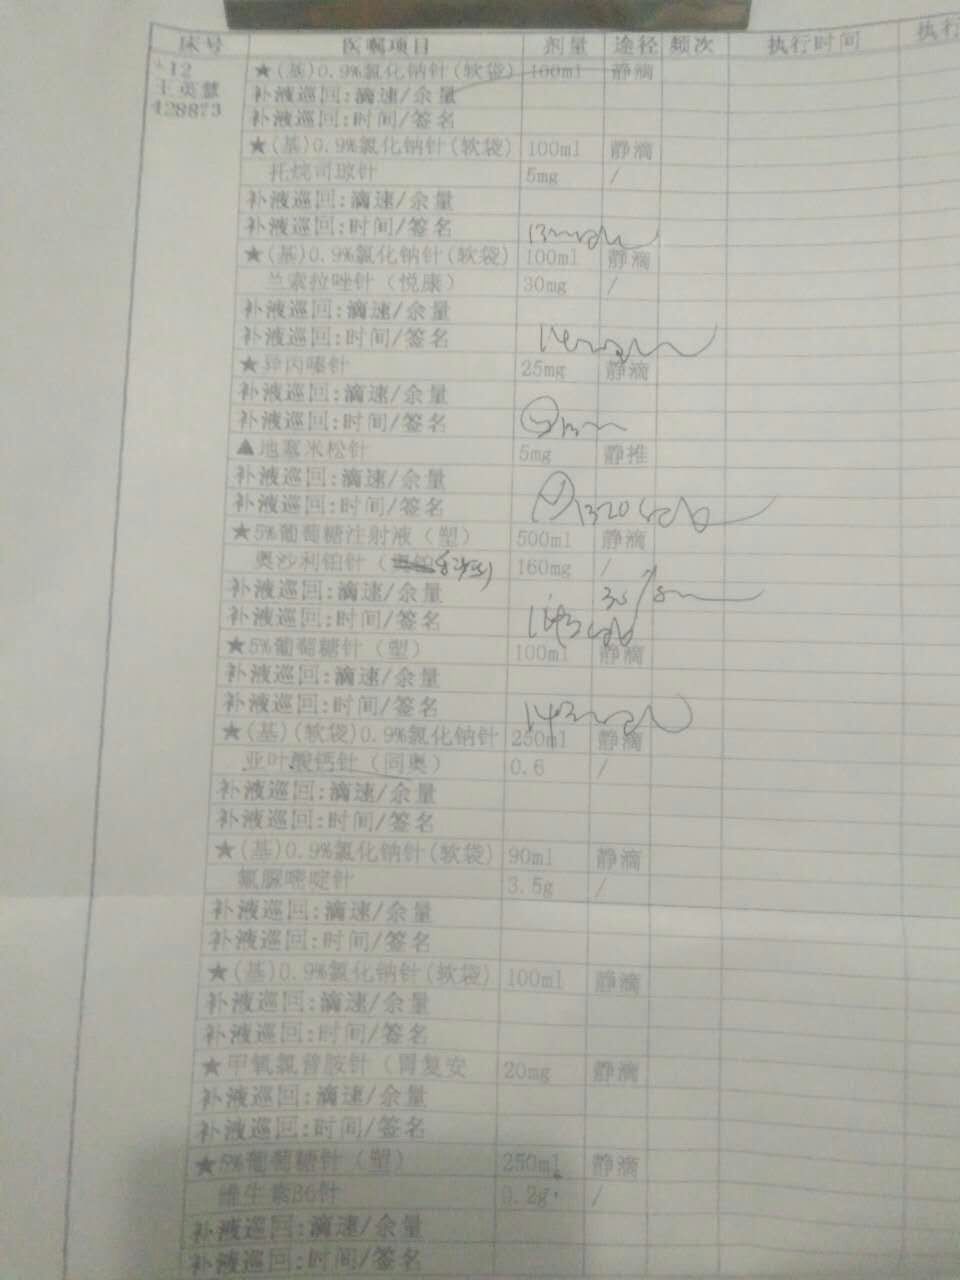 床号 医嘱项目 剂量 途径 频次 执行时间 执行
+12 ★(基)0.9%氯化钠针(软袋) 100ml 静滴
王英慧 补液巡回:滴速/余量
428873 补液巡回:时间/签名
★(基)0.9%氯化钠针(软袋) 100ml 静滴
托烷司琼针 5mg /
补液巡回:滴速/余量
补液巡回:时间/签名
★(基)0.9%氯化钠针(软袋) 100ml 静滴
兰索拉唑针(悦康) 30mg /
补液巡回:滴速/余量
补液巡回:时间/签名
★异丙嗪针 25mg 静滴
补液巡回:滴速/余量
补液巡回:时间/签名
▲地塞米松针 5mg 静推
补液巡回:滴速/余量
补液巡回:时间/签名 1320
★5%葡萄糖注射液(塑) 500ml 静滴
奥沙利铂针( 160mg /
补液巡回:滴速/余量
补液巡回:时间/签名
★5%葡萄糖针(塑) 100ml 静滴
补液巡回:滴速/余量
补液巡回:时间/签名
★(基)(软袋)0.9%氯化钠针 250ml 静滴
亚叶酸钙针(同奥) 0.6 /
补液巡回:滴速/余量
补液巡回:时间/签名
★(基)0.9%氯化钠针(软袋) 90ml 静滴
氟脲嘧啶针 3.5g /
补液巡回:滴速/余量
补液巡回:时间/签名
★(基)0.9%氯化钠针(软袋) 100ml 静滴
补液巡回:滴速/余量
补液巡回:时间/签名
★甲氧氯普胺针(胃复安 20mg 静滴
补液巡回:滴速/余量
补液巡回:时间/签名
★5%葡萄糖针(塑) 250ml 静滴
维生素B6针 0.2g /
补液巡回:滴速/余量
补液巡回:时间/签名